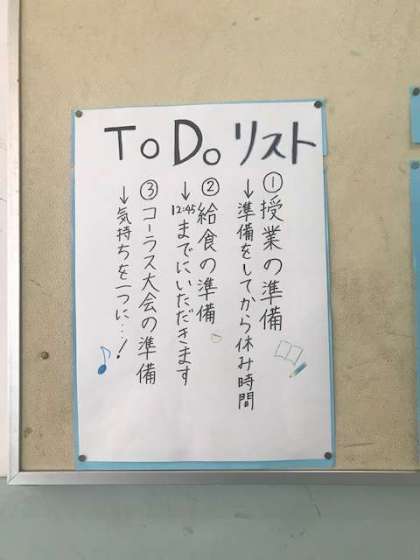 ToDoリスト
①授業の準備
↓準備をしてから休み時間
②給食の準備
↓12:45までにいただきます
③コーラス大会の準備
↓気持ちを一つに…!